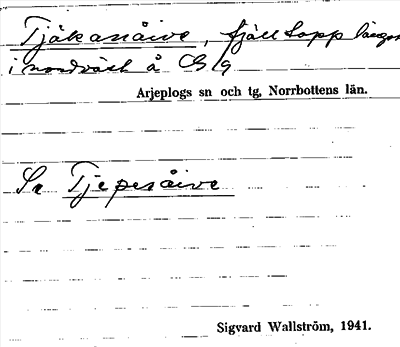 Tjåkanåive, fjälltopp längst
i nordväst å Gg
Arjeplogs sn och tg, Norrbottens län.
Se Tjepesåive
Sigvard Wallström, 1941.